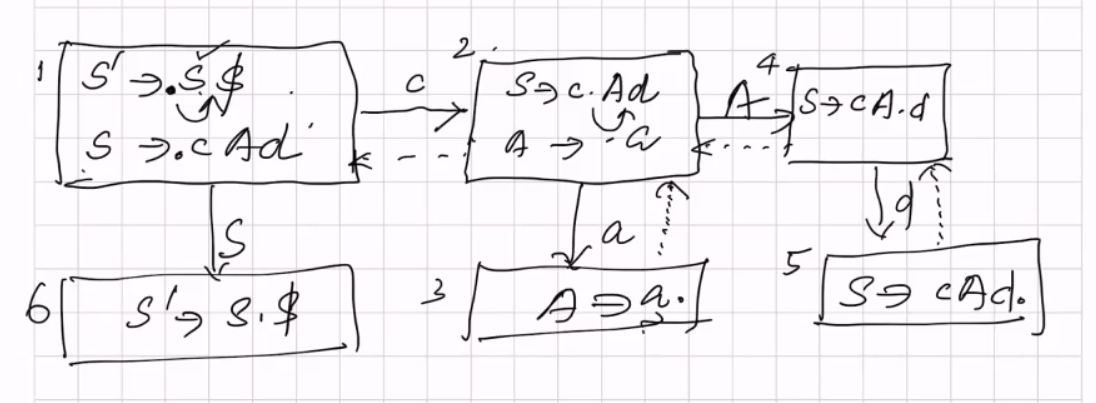 1
S' → .S $
S → .c Ad
c
2
S → c.Ad
A → .a
A
4
S → cA.d
S
a
d
6
S' → S.$
3
A → a.
5
S → cAd.